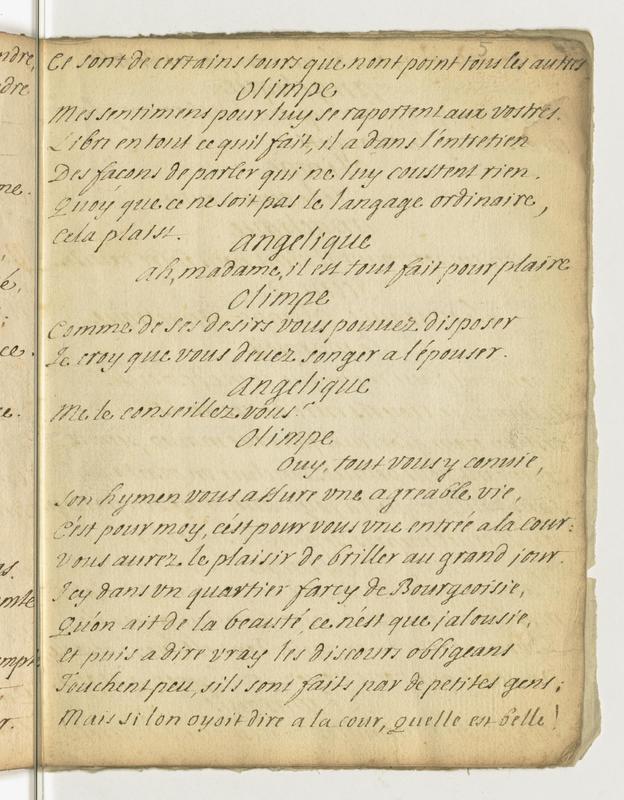 5
ndre,
dre
Ce sont de certains tours que nont point tous les autres
Olimpe
Mes sentimens pour luy se raportent aux vostres.
Libre en tout ce quil fait, il a dans l'entretien
Des façons de parler qui ne luy coustent rien.
Quoy que ce ne soit pas le langage ordinaire,
Cela plaist.
angelique
ah, madame, il est tout fait pour plaire
Olimpe
Comme de ses desirs vous pouuez disposer
Je croy que vous deuez songer a l'épouser.
angelique
Me le conseillez vous.
Olimpe
Ouy, tout vous y conuie,
son hymen vous assure vne agreable vie,
C'est pour moy, c'est pour vous vne entrée a la cour:
Vous aurez le plaisir de briller au grand jour.
Icy dans vn quartier farcy de Bourgeoisie,
Qu'on ait de la beauté, ce n'est que jalousie,
et puis a dire vray les discours obligeans
Touchent peu, sils sont faits par de petites gens;
Mais si lon oyoit dire a la cour, quelle est belle!